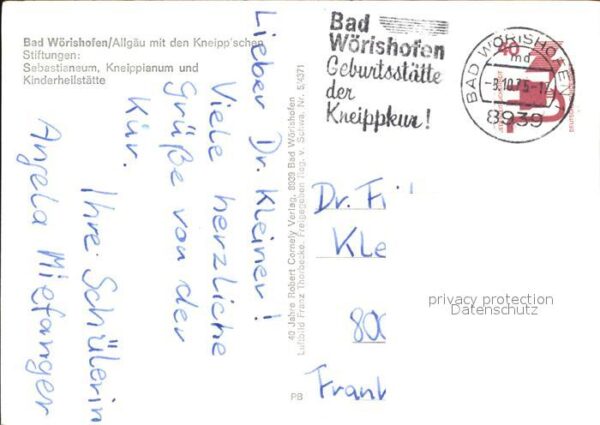 Bad Wörishofen/Allgäu mit den Kneipp'schen
Stiftungen:
Sebastianeum, Kneippianum und
Kinderheilstätte
Lieber Dr. Kleiner!
Viele herzliche
Grüße von der
Kur.
Ihre Schülerin
Angela
40 Jahre Robert Cornely Verlag, 8939 Bad Wörishofen
Luftbild Franz Thorbecke. Freigegeben Reg. v. Schwa. Nr. 5/4371
PB
Bad
Wörishofen
Geburtsstätte
der
Kneippkur!
BAD WÖRISHOFEN
md
8939
40
Dr. Fi
Kle
80
Frank
privacy protection
Datenschutz